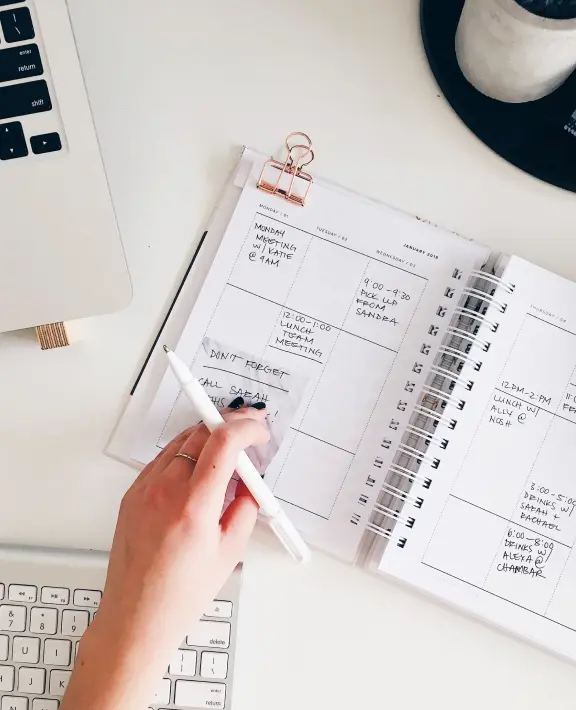 enter
return
shift
JANUARY 2018
MONDAY / 01
TUESDAY / 02
WEDNESDAY / 03
MONDAY
MEETING
W/ KATIE
@ 9AM
9:00-9:30
PICK UP
FROM
SANDRA
12:00-1:00
LUNCH
TEAM
MEETING
DON'T FORGET
CALL SARAH
THIS
!
12PM-2PM
LUNCH W/
ALLY @
NOSH
3:00-5:00
DRINKS W/
SARAH +
RACHAEL
6:00-8:00
DRINKS W/
ALEXA @
CHAMBAR
& 7
* 8
( 9
U
I
J
K
N
delete
enter
return